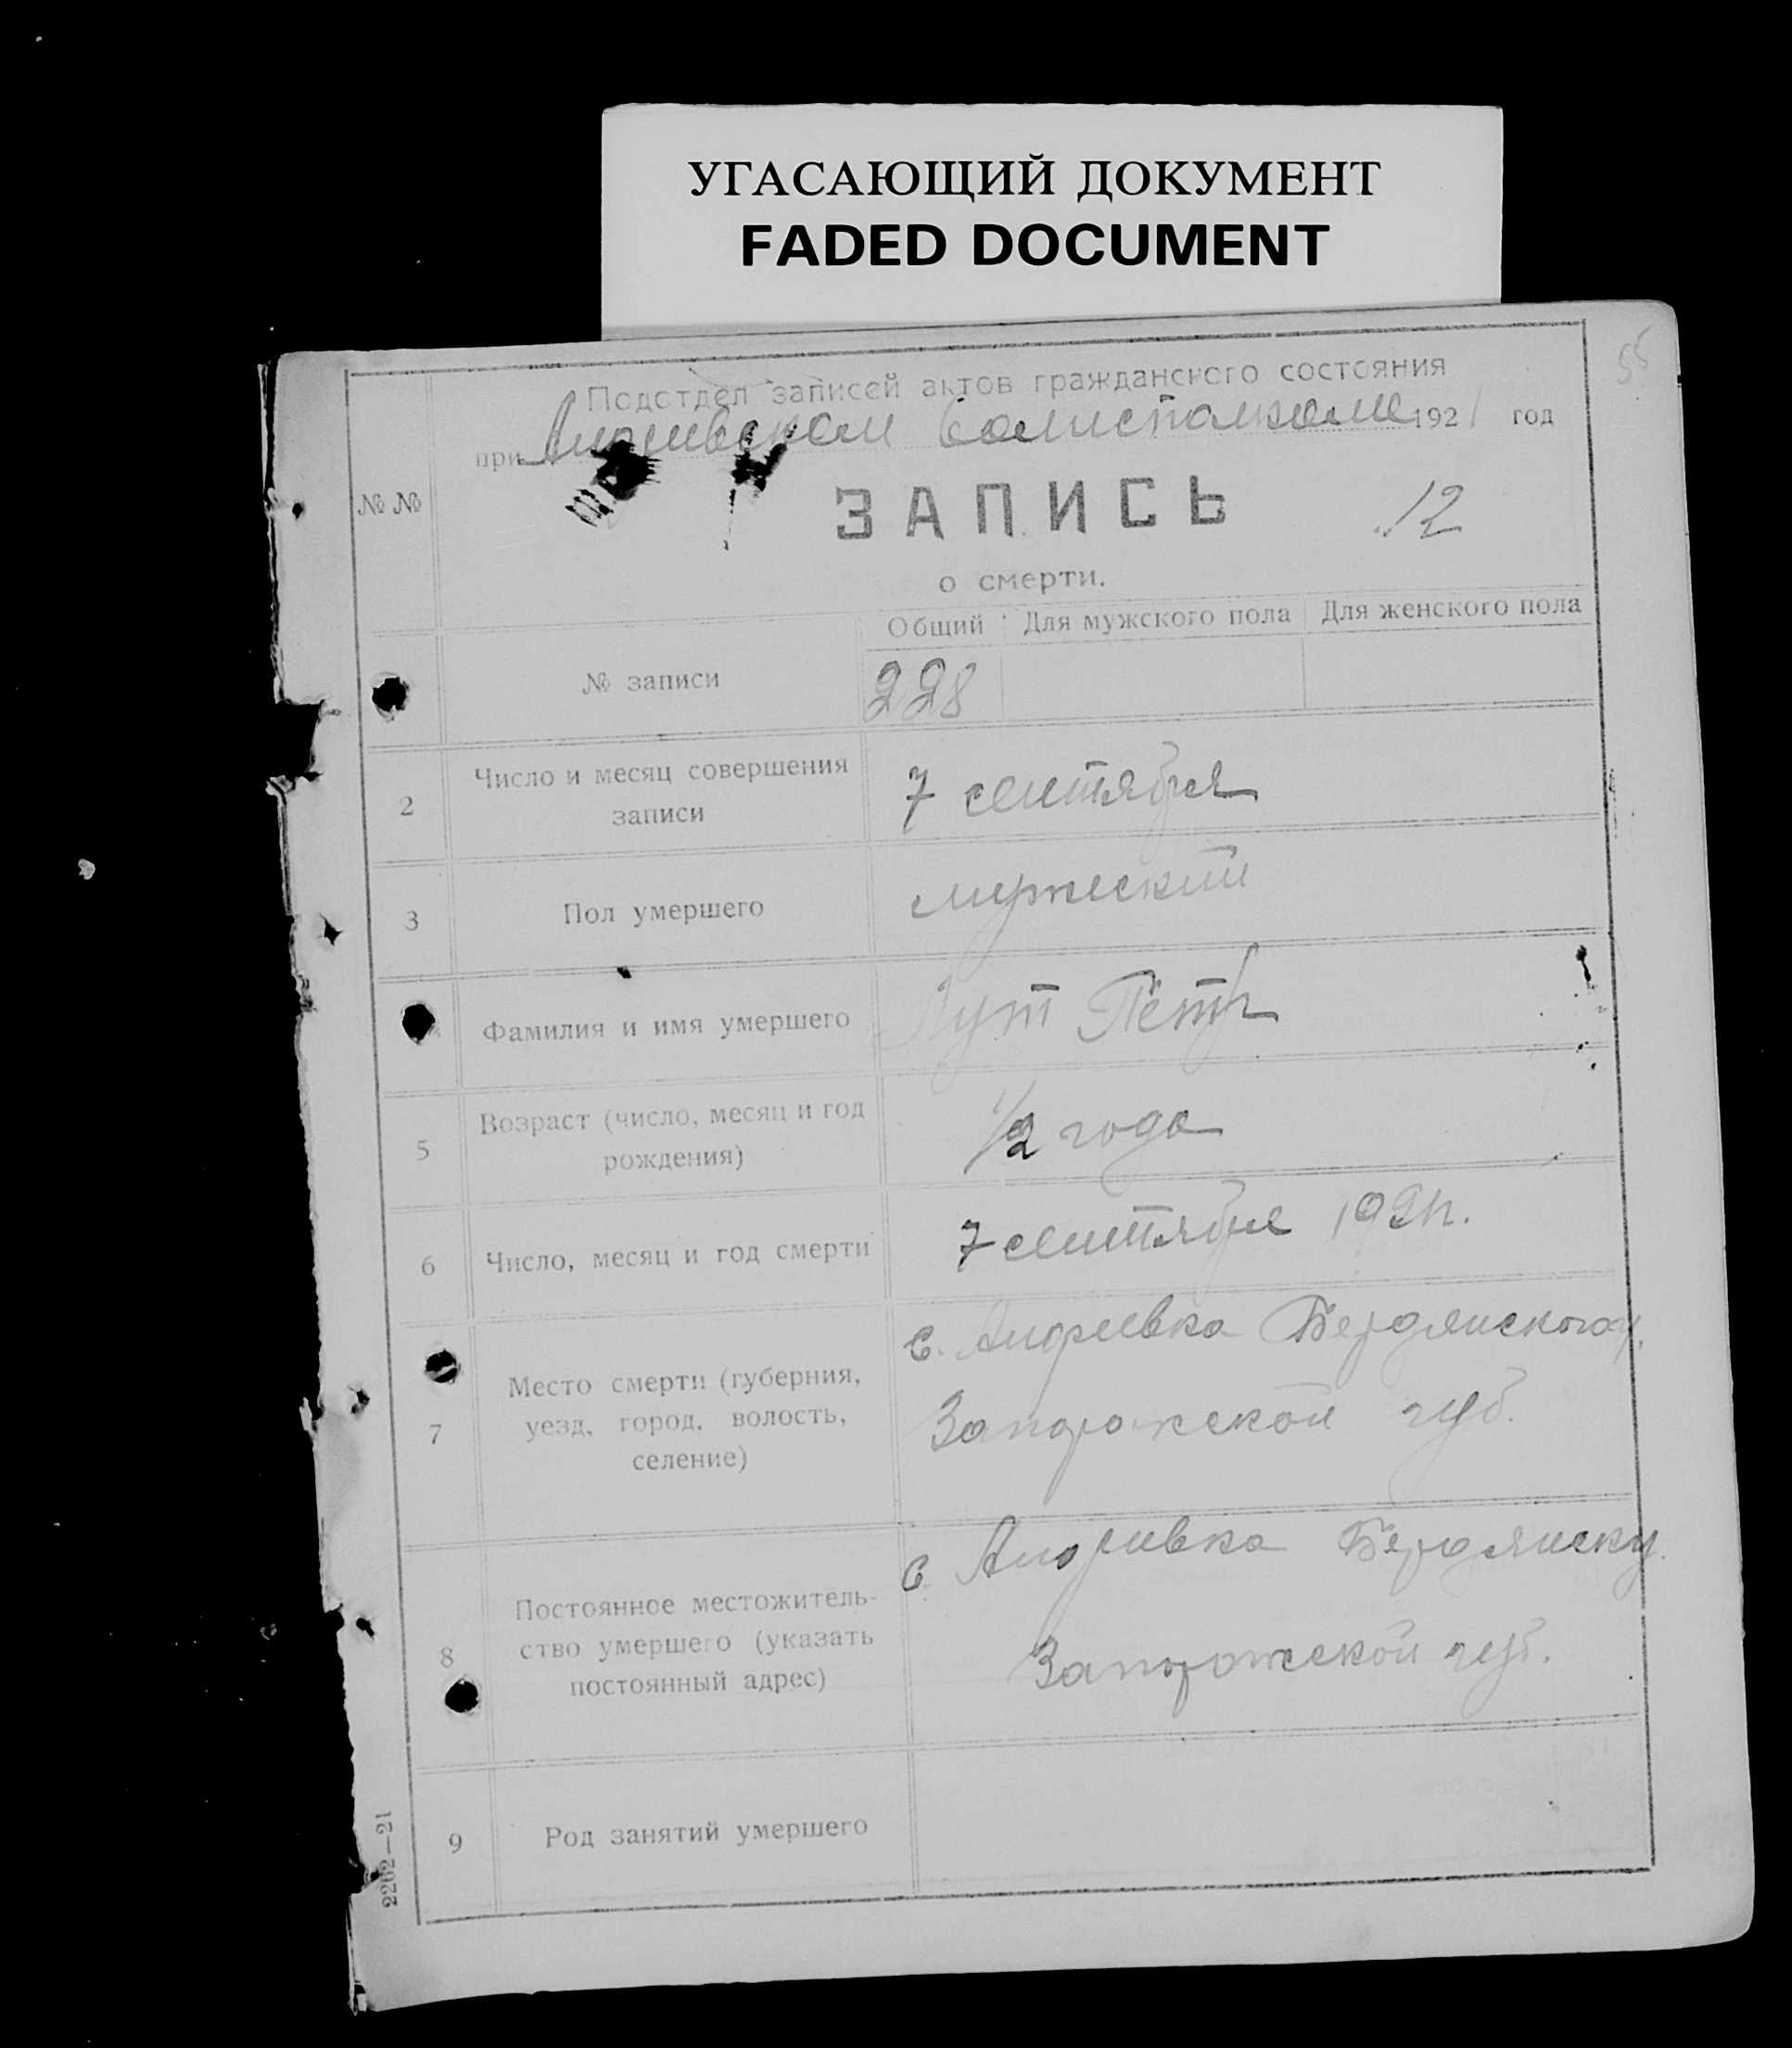 УГАСАЮЩИЙ ДОКУМЕНТ
FADED DOCUMENT
55
Подотдел записей актов гражданского состояния
при Андреевском волисполкоме 1921 год
№ №
ЗАПИСЬ
12
о смерти.
Общий Для мужского пола Для женского пола
№ записи 228
2 Число и месяц совершения
записи
7 сентября
3 Пол умершего мужеский
Фамилия и имя умершего Лут Пётр
5 Возраст (число, месяц и год
рождения)
1/2 года
6 Число, месяц и год смерти 7 сентября 1921 г.
7 Место смерти (губерния,
уезд, город, волость,
селение)
с. Андреевка Бердянского у.
Запорожской губ.
8 Постоянное местожитель-
ство умершего (указать
постоянный адрес)
с. Андреевка Бердянск у.
Запорожской губ.
9 Род занятий умершего
2202—21